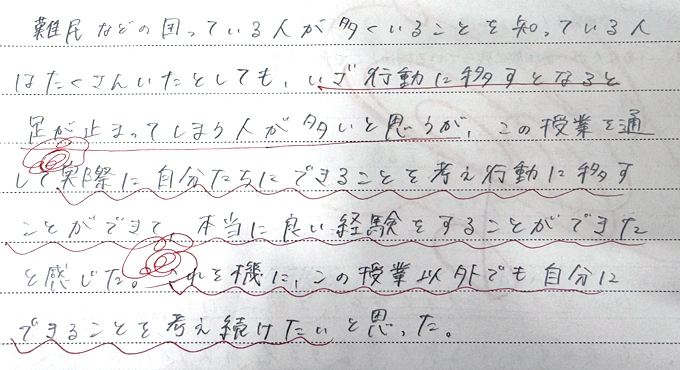 難民などの困っている人が多くいることを知っている人
はたくさんいたとしても、いざ行動に移すとなると
足が止まってしまう人が多いと思うが、この授業を通
して実際に自分たちにできることを考え行動に移す
ことができて、本当に良い経験をすることができた
と感じた。これを機に、この授業以外でも自分に
できることを考え続けたいと思った。